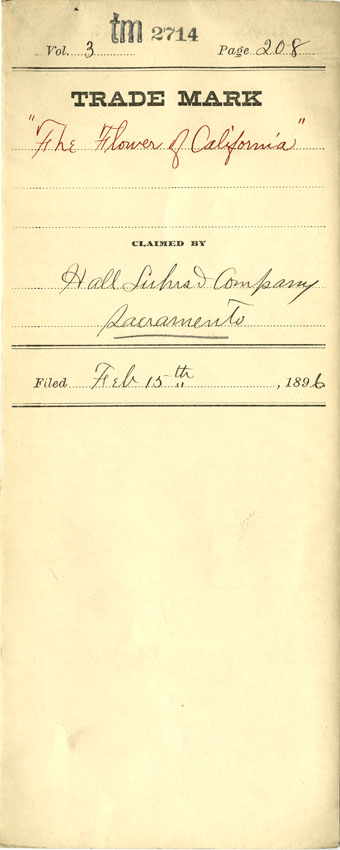 tm 2714
Vol. 3 Page 208
TRADE MARK
"The Flower of California"
CLAIMED BY
Hall Luhrs & Company
Sacramento
Filed Feb 15th, 1896